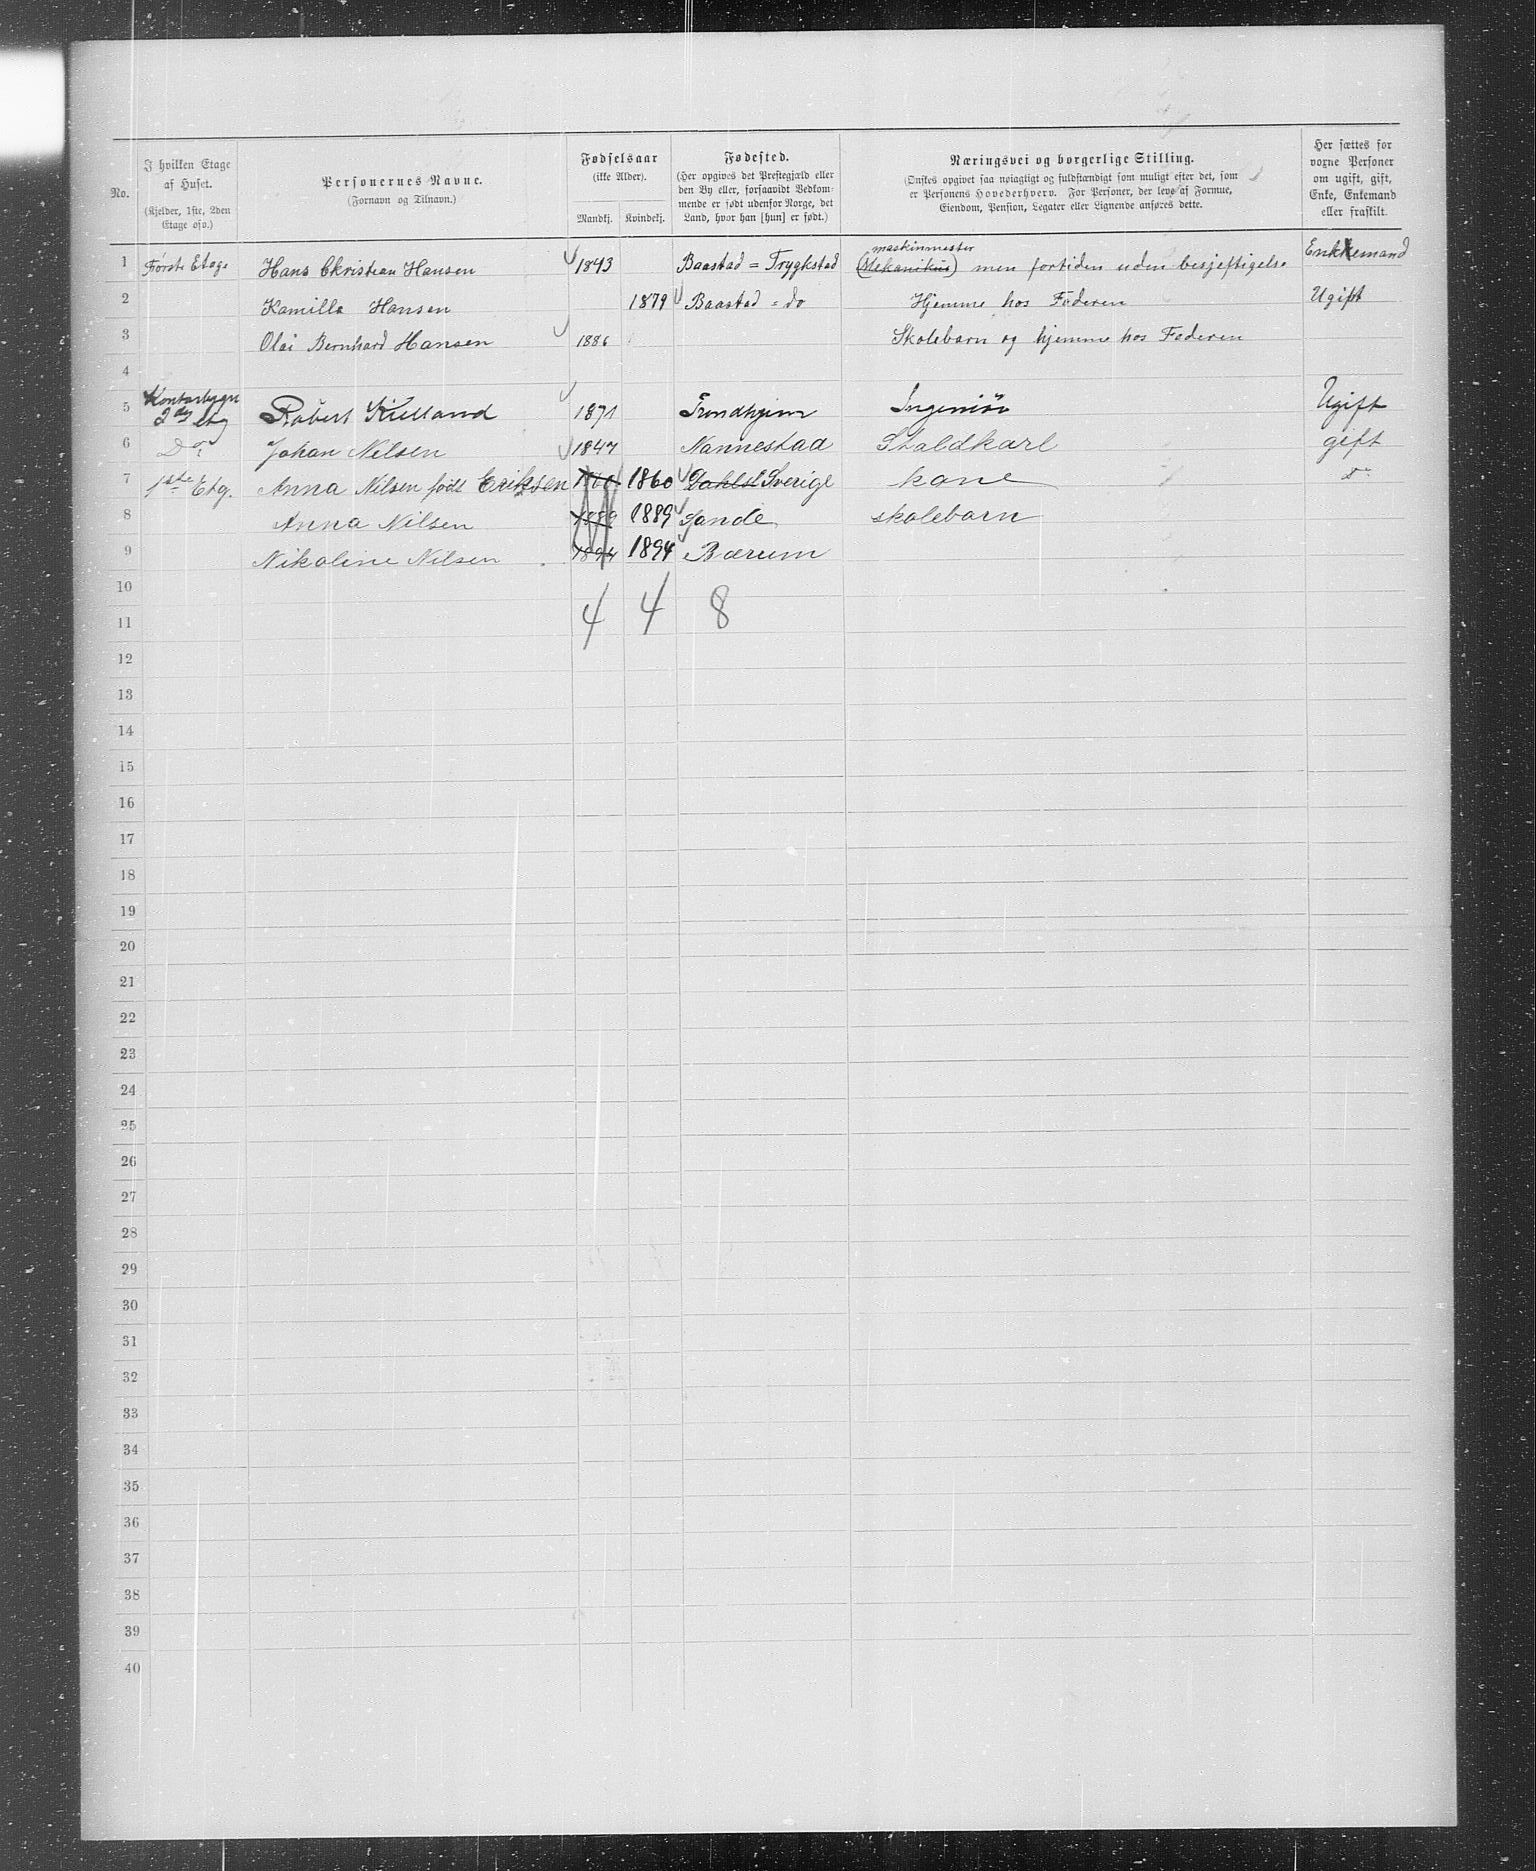 No.
I hvilken Etage af Huset.
(Kjelder, 1ste, 2den Etage osv.)
Personernes Navne.
(Fornavn og Tilnavn.)
Fødselsaar
(ikke Alder).
Mandkj. Kvindekj.
Fødested.
(Her opgives det Præstegjæld eller
den By eller, forsaavidt Vedkom-
mende er født udenfor Norge, det
Land, hvor han [hun] er født.)
Næringsvei og borgerlige Stilling.
(Ønskes opgivet saa nøiagtigt og fuldstændigt som muligt efter det, som
er Personens Hovederhverv. For Personer, der leve af Formue,
Eiendom, Pension, Legater eller Lignende anføres dette.
Her sættes for
voxne Personer
om ugift, gift,
Enke, Enkemand
eller fraskilt.
maskinmester
1 Første Etage Hans Christian Hansen 1843 Baastad = Trygkstad (Mekanikus) men fortiden uden besjeftigelse Enkemand
2 Kamilla Hansen 1879 Baastad = do Hjemme hos Faderen Ugift
3 Olai Bernhard Hansen 1886 Skolebarn og hjemme hos Faderen
4
Kontorbygn
5 2den Etg Robert Kielland 1871 Trondhjem Ingeniør Ugift
6 Do Johan Nilsen 1847 Nannestad Staldkarl gift
7 1ste Etg. Anna Nilsen født Eriksen 1860 1860 Dahlsl Sverige kone do
8 Anna Nilsen 1889 1889 Sande skolebarn
9 Nikoline Nilsen 1894 1894 Bærum
10
4 4 8
11
12
13
14
15
16
17
18
19
20
21
22
23
24
25
26
27
28
29
30
31
32
33
34
35
36
37
38
39
40